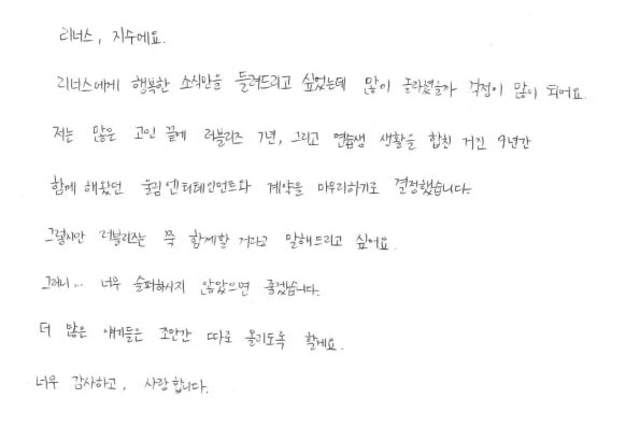 리너스, 지수에요.
리너스에게 행복한 소식만을 들려드리고 싶었는데 많이 놀라셨을까 걱정이 많이 되어요
저는 많은 고민 끝에 러블리즈 7년, 그리고 연습생 생활을 합친 거진 9년간
함께 해왔던 울림엔터테인먼트와 계약을 마무리하기로 결정했습니다.
그렇지만 러블리즈는 쭉 함께할 거라고 말해드리고 싶어요.
그러니... 너무 슬퍼하시지 않았으면 좋겠습니다.
더 많은 얘기들은 조만간 따로 올리도록 할게요.
너무 감사하고, 사랑합니다.